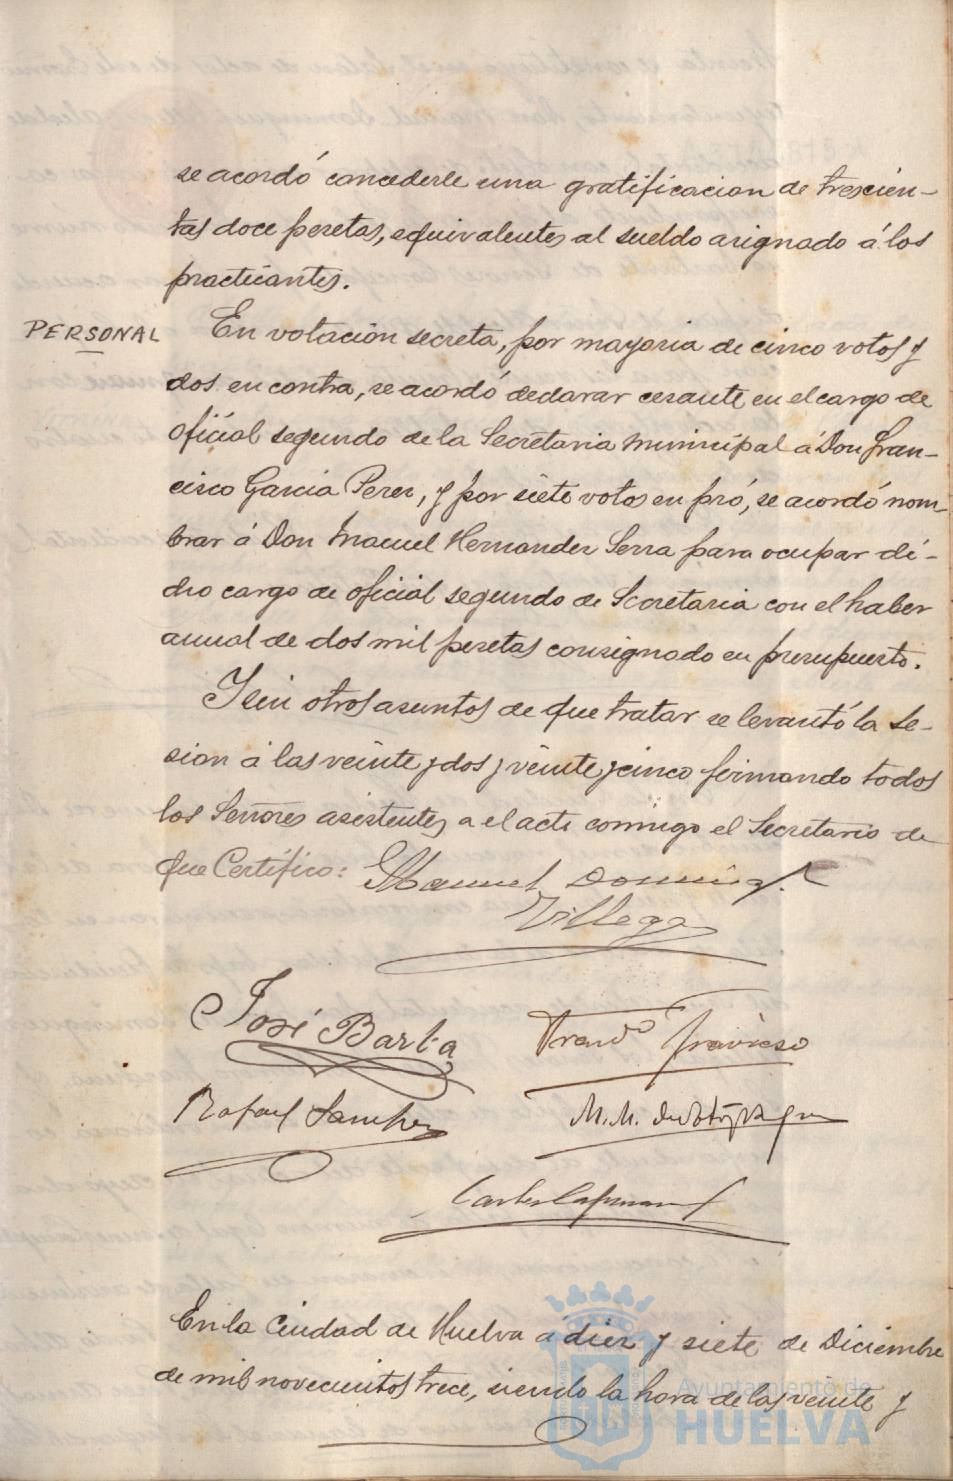 se acordó concederle una gratificacion de trescien-
tas doce pesetas, equivalentes al sueldo asignado á los
practicantes.
PERSONAL
En votación secreta, por mayoria de cinco votos y
dos en contra, se acordó declarar cesante en el cargo de
oficial segundo de la Secretaria municipal á Don Fran-
cisco Garcia Perez, y por siete votos en pró, se acordó nom-
brar á Don Manuel Hernandez Serra para ocupar di-
cho cargo de oficial segundo de Secretaria con el haber
anual de dos mil pesetas consignado en presupuesto.
Y sin otros asuntos de que tratar se levantó la se-
sion á las veinte y dos y veinte y cinco firmando todos
los Señores asistentes a el acto conmigo el Secretario de
que Certifico: Manuel Doming.
Villega
José Barba
Rafael Sanchez
M. M.
Carlos
En la Ciudad de Huelva a diez y siete de Diciembre
de mil novecientos trece, siendo la hora de las veinte y
Ayuntamiento de
HUELVA